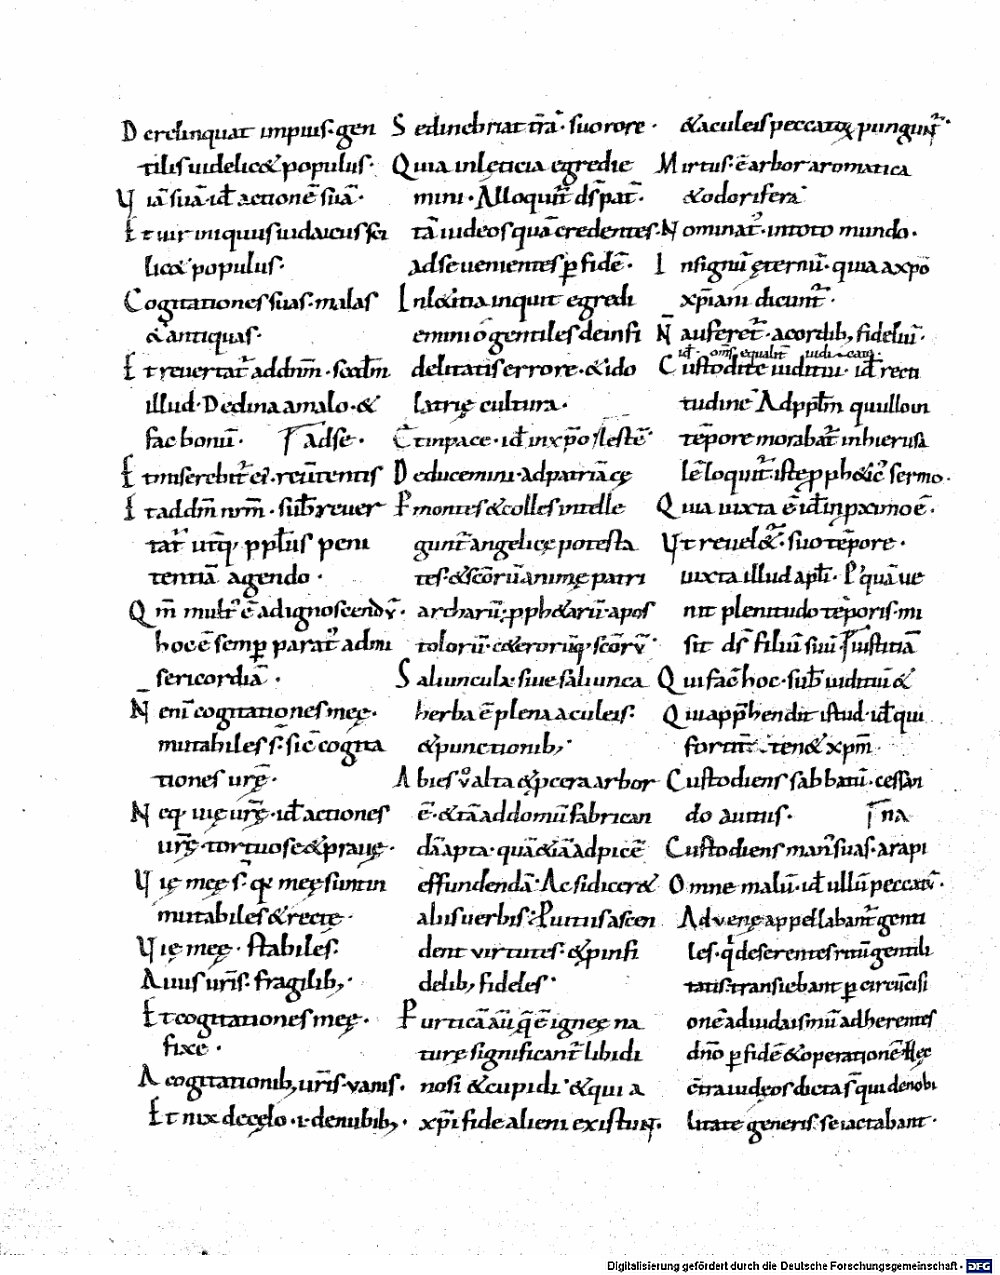 Derelinquat impius· gen
tilis uidelic& populus·
Uiā suā· id̄ actionē suā·
Et uir iniquus iudaicus sci
lic& populus·
Cogitationes suas· malas
& antiquas·
Et reuertat̄ ad dn̄m·
illud· Declina a malo· &
fac bonū· ad se·
Et miserebit̄ ei· reūtentis
Et ad dm̄ nr̄m· sub̄ reuer
tat̄ utrq; pp̄lus peni
tentiā agendo·
Qm̄ mult᷒ ē ad ignoscendū·
hoc ē semp̄ parat᷒ ad mi
sericordiā·
N̄ enī cogitationes meę·
mutabiles s̄· sic̄ cogita
tiones ur̄ę·
Neq; uię ur̄ę· id̄ actiones
ur̄ę· tortuose & prauę·
Uię meę s̄· quę meę sunt in
mutabiles & recte·
Uię meę· stabiles·
A uiis ur̄is· fragilib;·
Et cogitationes meę·
fixe·
A cogitationib; ur̄is· vanis·
Et nix de cęlo· i· de nubib;·
Sed inebriat tr̄ā· suo rore·
Quia in lęticia egredie
mini· Alloquit̄ ds̄ pat̄·
tā iudeos quā credentes·
ad se uenientes p̄ fidē·
In l&itia inquit egredi
emini o gentiles de infi
delitatis errore· & ido
latrię cultura·
Et in pace· id̄ in xp̄o
Deducemini· ad patriā cę
montes & colles intelle
gunt̄ angelicę potesta
tes· & scōrū animę patri
archarū· pph&arū· apos
tolorū· c&erorūq; scōrū·
Saliuncula· siue saliunca
herba ē plena aculeis·
& punctionib;·
Abies v̊ alta & pcera arbor
ē· & tā ad domū fabrican
dā apta· quā &iā ad picē
effundendā· Ac si dicer&
aliis uerbis· Purtus ascen
dent virtutes· & p infi
delib; fideles·
P urticā aū quę ē igneę na
turę significant̄ libidi
nosi & cupidi· & qui a
xp̄i fide alieni existunt·
& aculeis peccatorū pungunt̄·
Mirtus· ē arbor aromatica
& odorifera
Nominat᷒· in toto mundo·
In signū ęternū· quia a xp̄o
xp̄iani dicunt̄·
N̄ auferet̄· a cordib; fideliū·
id̄· oms̄ equalit̄ iudicam
Custodite iuditiū· id̄ recti
tudinē Ad pp̄lm qui illo in
tēpore morabat̄ in hierusa
lē loquit̄· iste pph&ic᷒ sermo·
Quia iuxta ē id̄ in pximo ē·
Ut reuel&̄· suo tēpore·
iuxta illud apl̄i· P᷒quā ue
nit plenitudo tēporis· mi
sit ds̄ filiū suū iustitiā
Qui fac̄ hoc· sub̄ iuditiū &
Qui app̄hendit istud· id̄ qui
fortit̄· ten& xp̄m·
Custodiens sabbatū· cessan
do a uitiis·
Custodiens man᷒ suas· a rapi
Omne malū· id̄ ullū peccatū·
Aduenę appellabant̄ genti
les· qui deserentes ritū gentili
tatis· transiebant p̄ circūcisi
onē ad iudaismū adherentes
dn̄o p̄ fidē & operationē Hęc
cōtra iudęos dicta s̄ qui de nobi
litate generis· se iactabant·
Digitalisierung gefördert durch die Deutsche Forschungsgemeinschaft - DFG